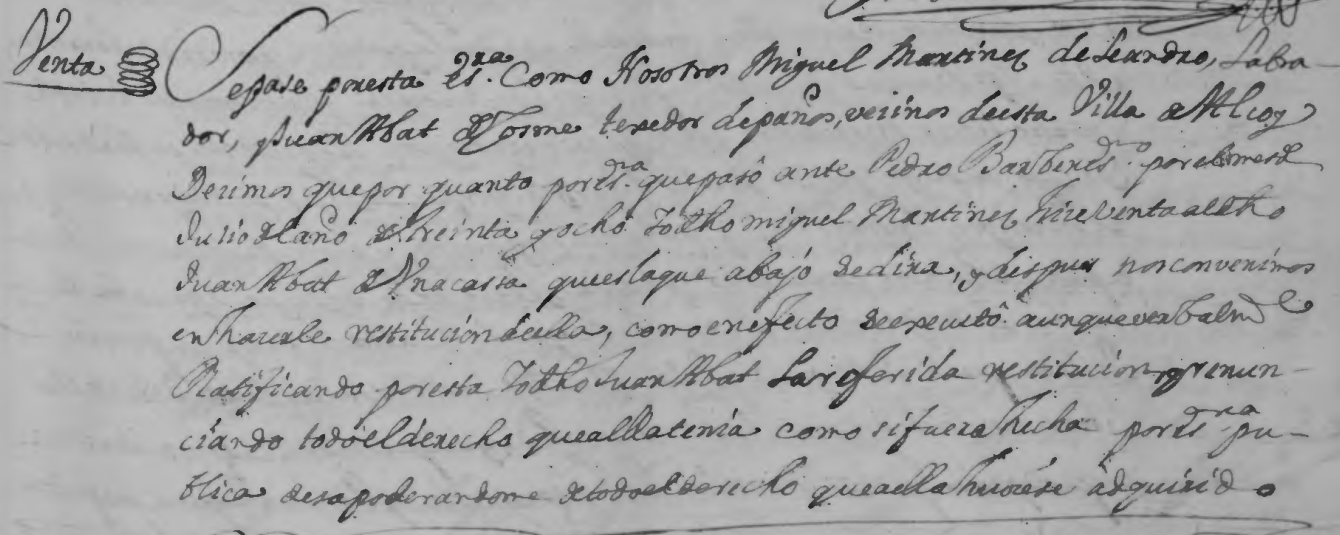 Venta
Sepase por esta esra. Como Nosotros Miguel Martinez de Leandro, Labra-
dor, y Juan Abat de Cosme texedor de paños, vecinos de esta Villa de Alcoy
Decimos que por quanto por esra. que pasó ante Pedro Barber esno. por el mes de
Julio del año de treinta y ocho Yo dho miguel Martinez hize Venta al dho
Juan Abat de Una cassa que es la que abajo se dira, y despues nos convenimos
en hacerle restitucion de ella, como en efecto se executó aunque verbalmte
Ratificando por esta Yo dho Juan Abat La referida restitucion, y renun-
ciando todo el derecho que a ella tenia como si fuera hecha por esra pu-
blica desapoderandome de todo el derecho que a ella huviese adquirido